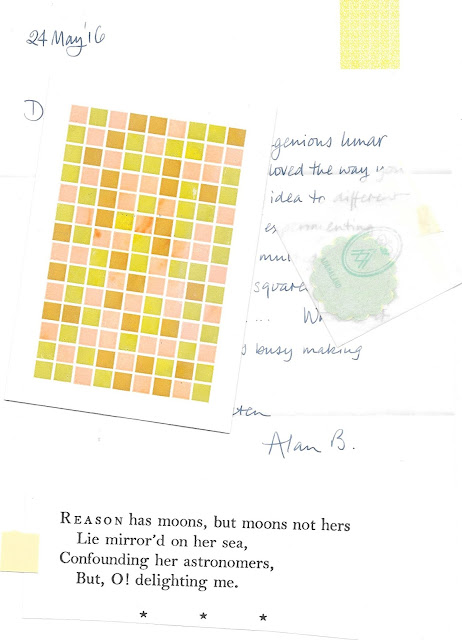 24 May '16
D genious lunar
loved the way you
idea to different
mul
square
.... W
s busy making
ten
Alan B.
REASON has moons, but moons not hers
Lie mirror'd on her sea,
Confounding her astronomers,
But, O! delighting me.
* * *